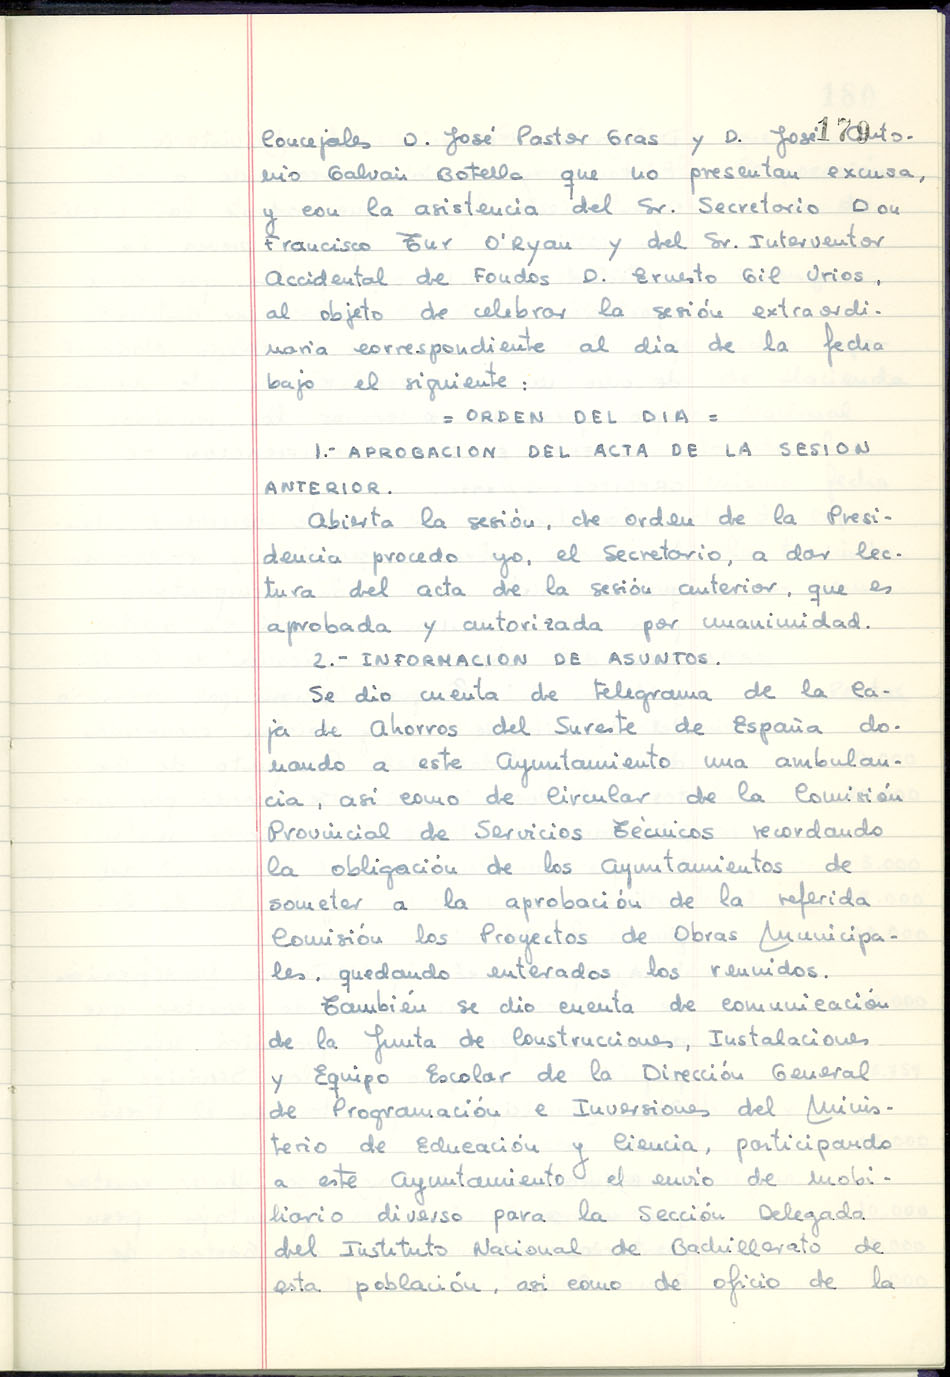 179
Concejales D. José Pastor Gras y D. José Anto-
nio Galvañ Botella que no presentan excusa,
y con la asistencia del Sr. Secretario Don
Francisco Tur O'Ryan y del Sr. Interventor
Accidental de Fondos D. Ernesto Gil Urios,
al objeto de celebrar la sesión extraordi-
naria correspondiente al dia de la fecha
bajo el siguiente:
= ORDEN DEL DIA =
1.- APROBACION DEL ACTA DE LA SESION
ANTERIOR.
Abierta la sesión, de orden de la Presi-
dencia procedo yo, el Secretario, a dar lec-
tura del acta de la sesión anterior, que es
aprobada y autorizada por unanimidad.
2.- INFORMACION DE ASUNTOS.
Se dio cuenta de telegrama de la Ca-
ja de Ahorros del Sureste de España do-
nando a este Ayuntamiento una ambulan-
cia, asi como de Circular de la Comisión
Provincial de Servicios Técnicos recordando
la obligación de los Ayuntamientos de
someter a la aprobación de la referida
Comisión los Proyectos de Obras Municipa-
les, quedando enterados los reunidos.
También se dio cuenta de comunicación
de la Junta de Construcciones, Instalaciones
y Equipo Escolar de la Dirección General
de Programación e Inversiones del Minis-
terio de Educación y Ciencia, participando
a este Ayuntamiento el envio de mobi-
liario diverso para la Sección Delegada
del Instituto Nacional de Bachillerato de
esta población, asi como de oficio de la